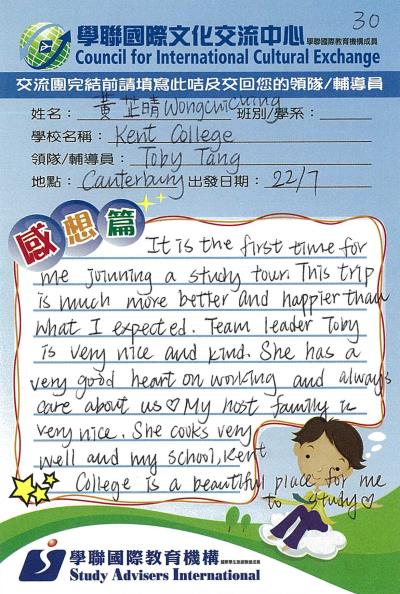 30
學聯國際文化交流中心 學聯國際教育機構成員
Council for International Cultural Exchange
交流團完結前請填寫此咭及交回您的領隊/輔導員
姓名: 黃芷晴 Wong chi ching 班別/學系:
學校名稱: Kent College
領隊/輔導員: Toby Tang
地點: Canterbury 出發日期: 22/7
感想篇
It is the first time for
me joinning a study tour. This trip
is much more better and happier than
what I expected. Team leader Toby
is very nice and kind. She has a
very good heart on working and always
care about us♡ My host family is
very nice. She cooks very
well and my school, Kent
College is a beautiful place for me
to study♡
學聯國際教育機構
Study Advisers International